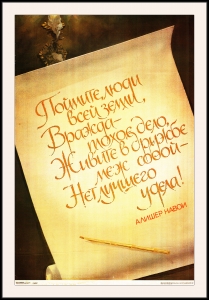 Поймите люди
всей земли,
Вражда –
плохое дело,
Живите в дружбе
меж собой –
Нет лучшего
удела!
АЛИШЕР НАВОИ